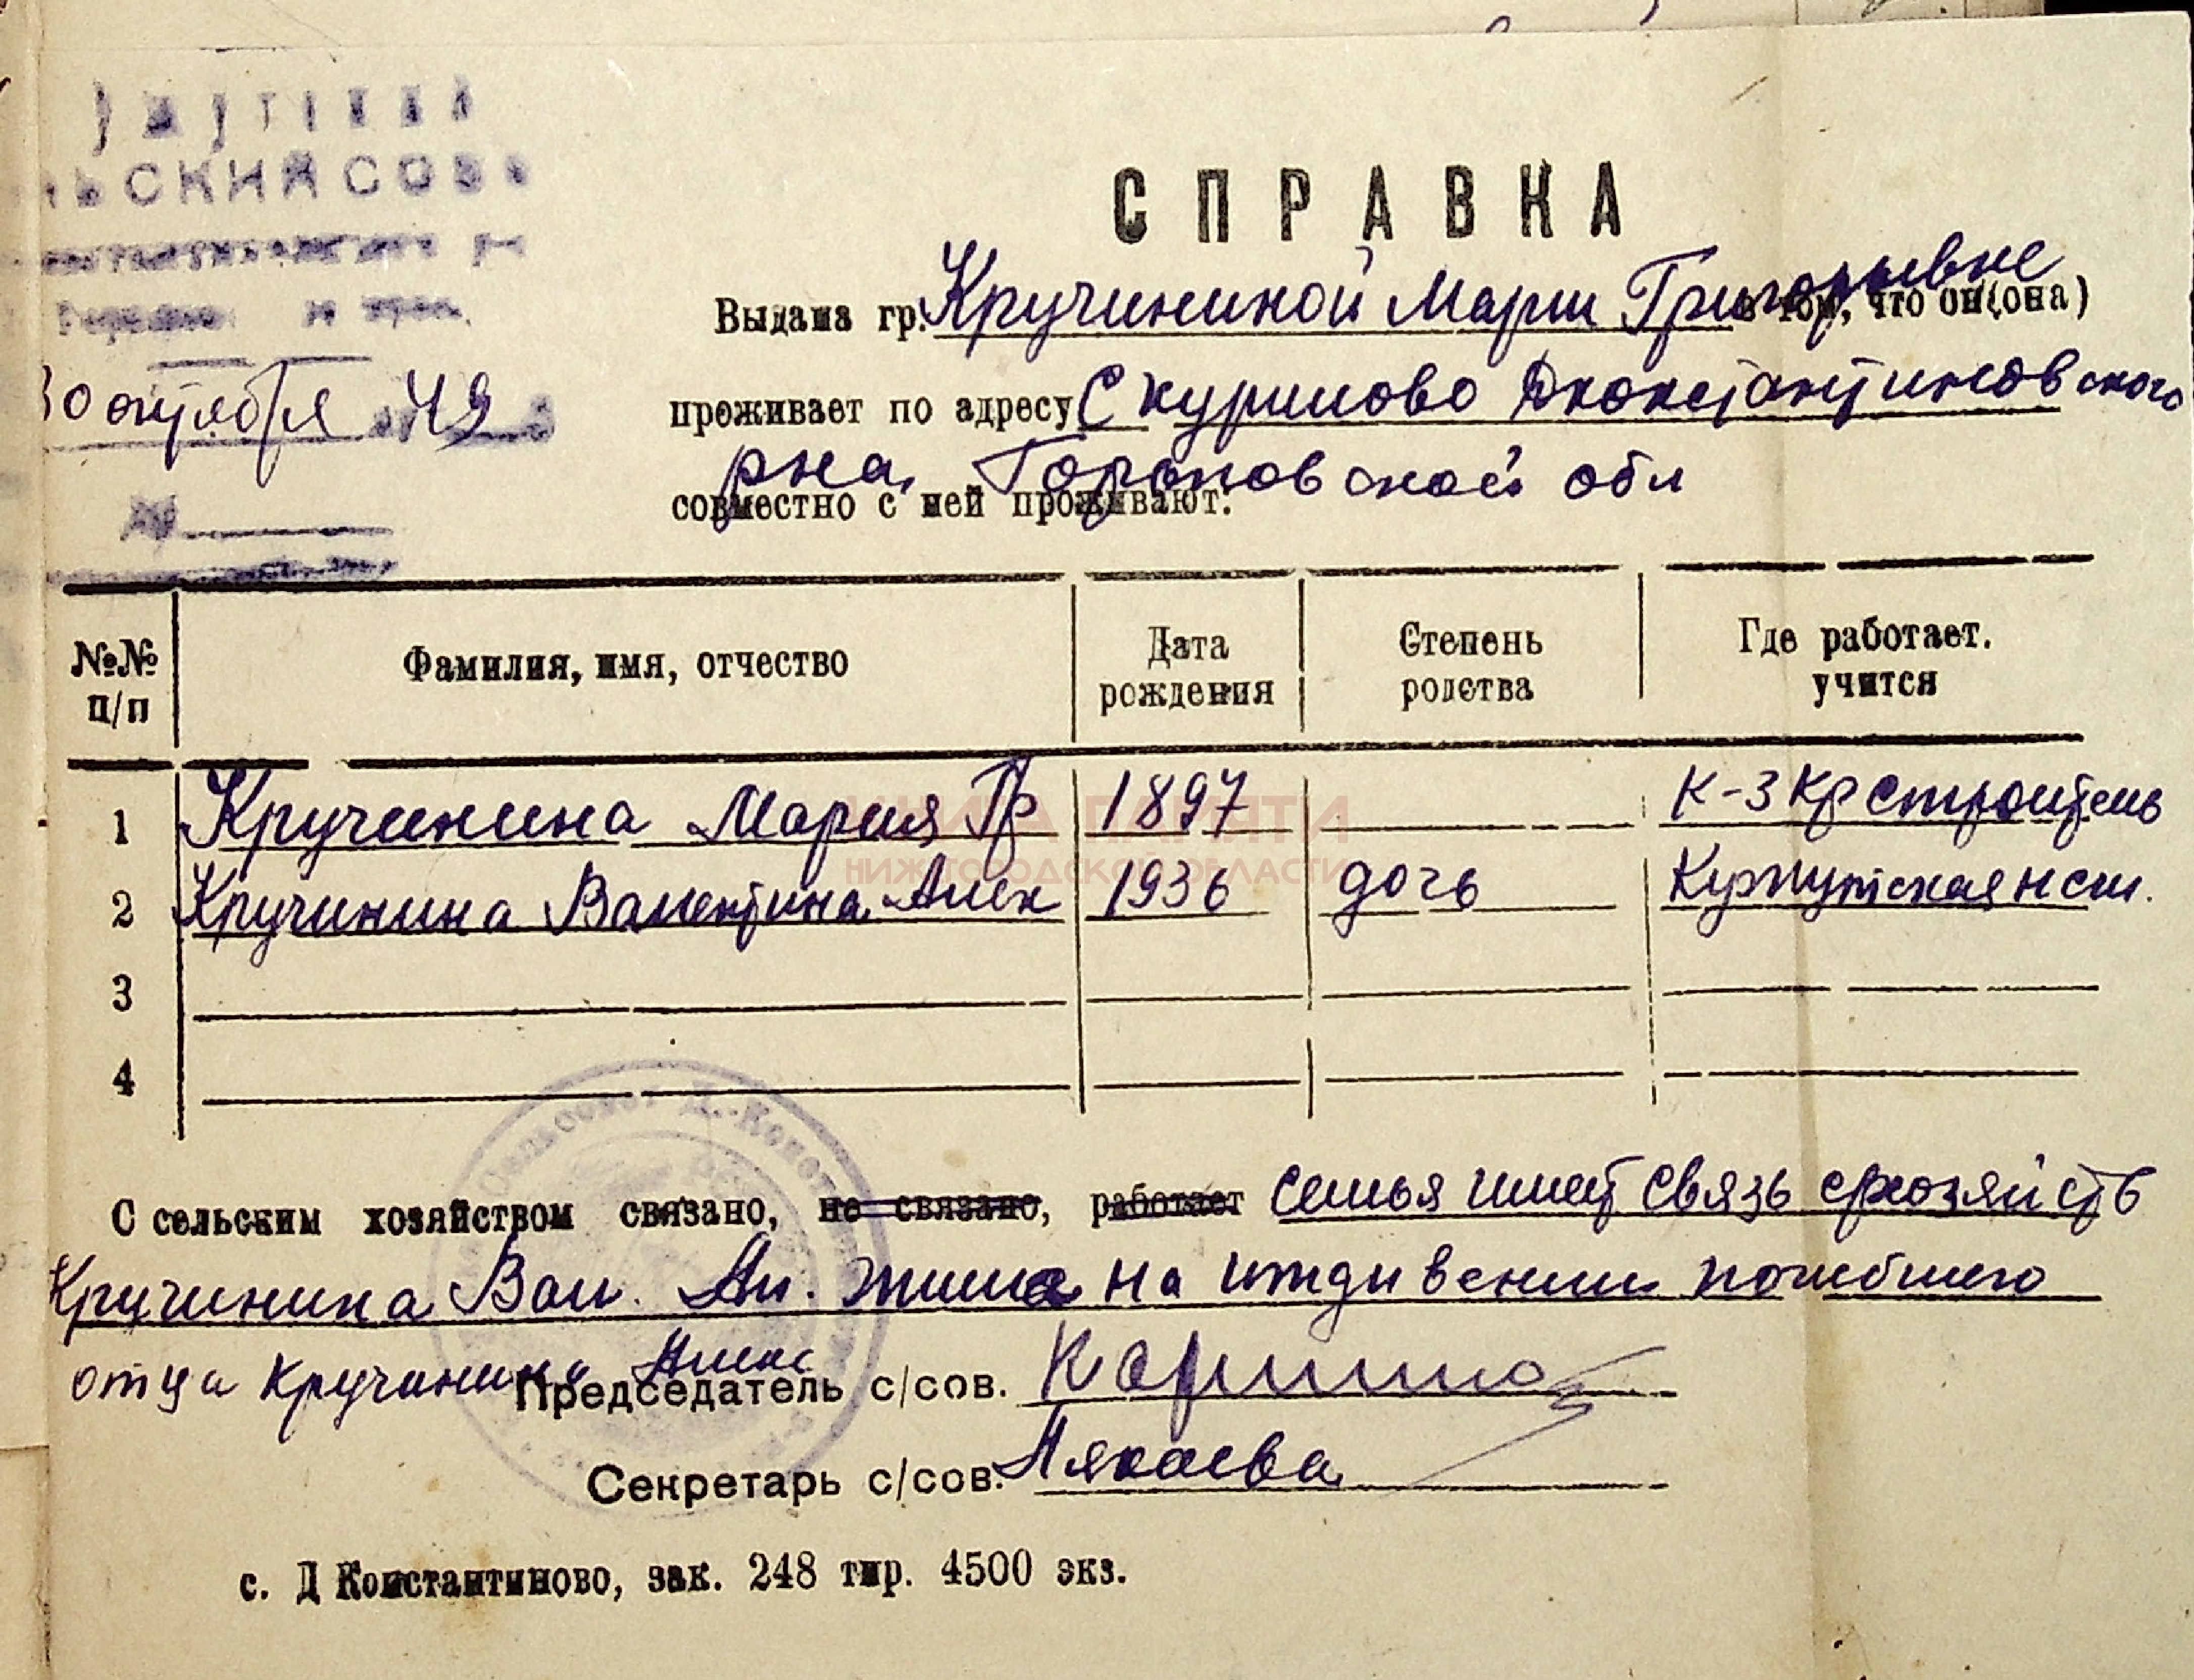 ЬСКИЙ СОВЕ
30 октября 49
СПРАВКА
Выдана гр. Кручининой Марии Григорьевне в том, что он(она)
проживает по адресу С Курилово Дконстантиновского
рна, Горьковской обл
совместно с ней проживают:
№№ п/п
Фамилия, имя, отчество
Дата рождения
Степень родства
Где работает. учится
1 Кручинина Мария Гр 1897 К-з Кр строитель
2 Кручинина Валентина Алек 1936 дочь нсш.
3
4
КНИГА ПАМЯТИ
НИЖЕГОРОДСКОЙ ОБЛАСТИ
С сельским хозяйством связано, не связано, работает семья имеет связь
Кручинина Вал. Ал. жила на иждивении погибшего
отца Кручинина Алекс
Председатель с/сов.
Секретарь с/сов.
с. Д Константиново, зак. 248 тир. 4500 экз.